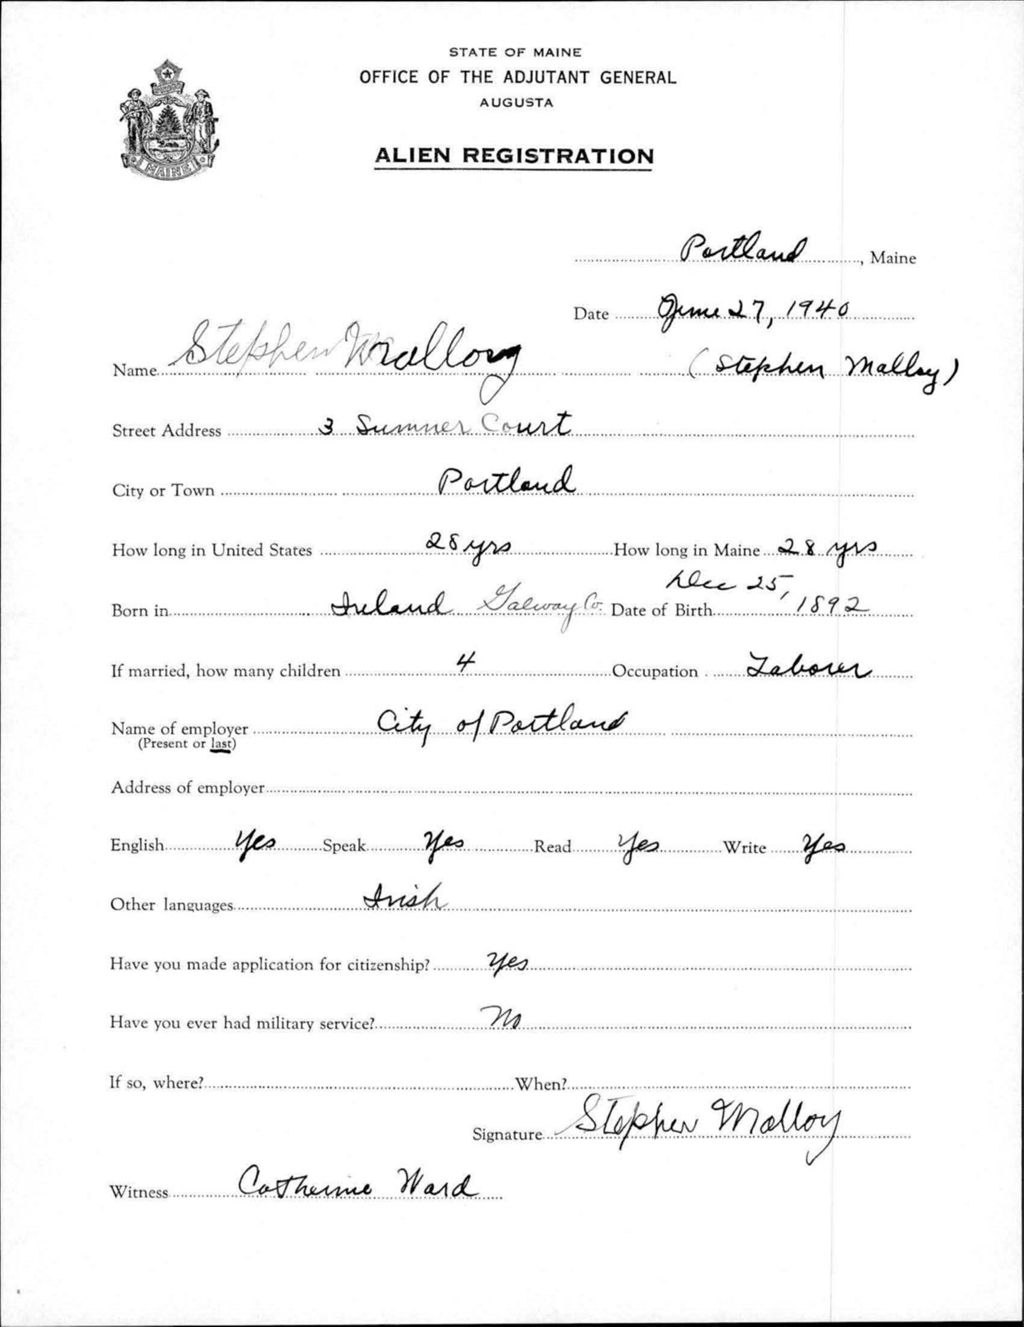 STATE OF MAINE
OFFICE OF THE ADJUTANT GENERAL
AUGUSTA
ALIEN REGISTRATION
MAINE
Portland, Maine
Date June 27, 1940
Name Stephen Malloy (Stephen Malloy)
Street Address 3 Sumner Court
City or Town Portland
How long in United States 28 yrs How long in Maine 28 yrs
Born in Ireland Galway Co. Date of Birth Dec 25, 1892
If married, how many children 4 Occupation Laborer
Name of employer City of Portland
(Present or last)
Address of employer
English Yes Speak Yes Read Yes Write Yes
Other languages Irish
Have you made application for citizenship? Yes
Have you ever had military service? No
If so, where? When?
Signature Stephen Malloy
Witness Catherine Ward